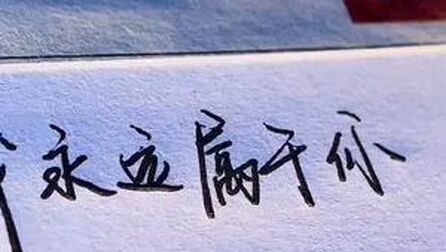 永远属于你